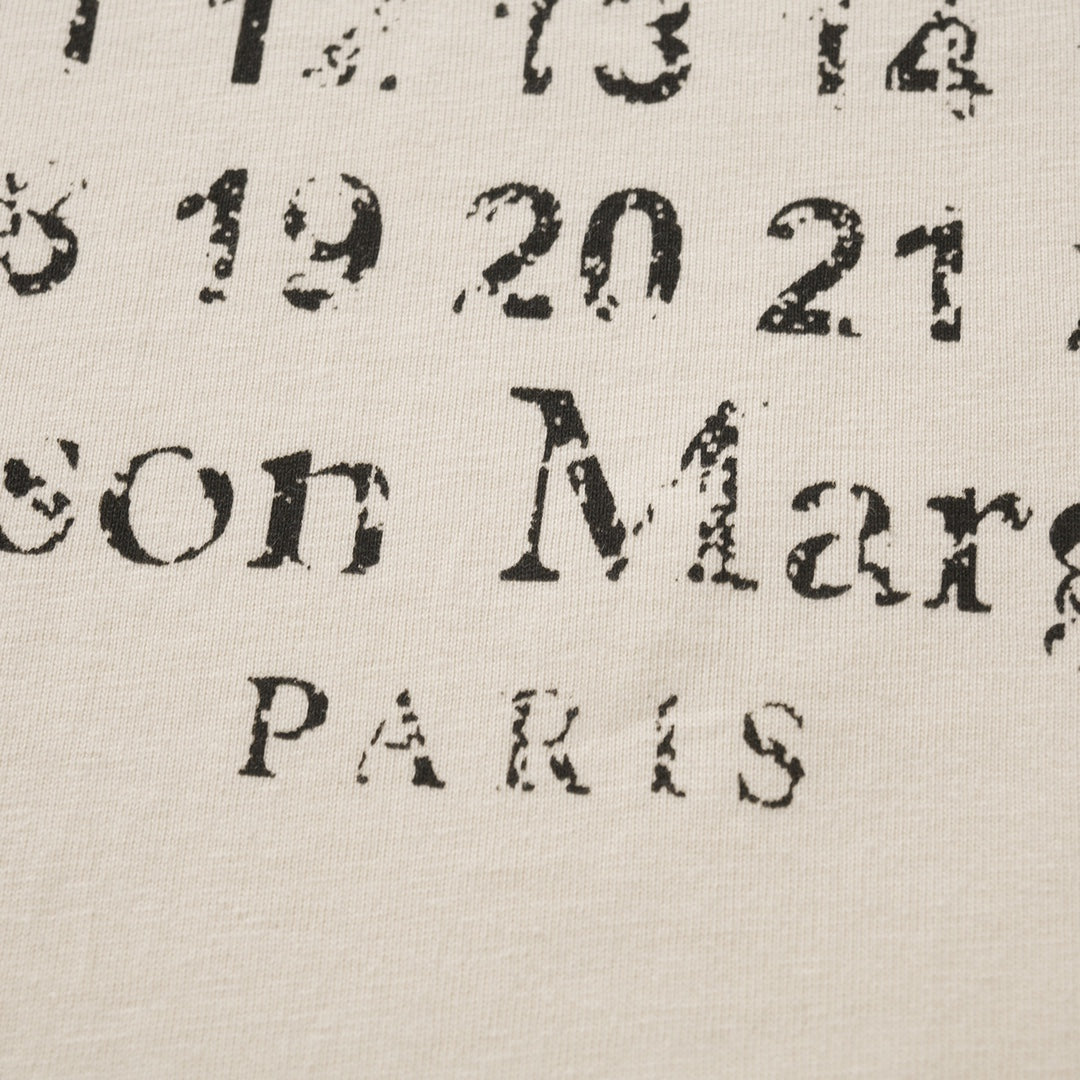 1 12 13 14
8 19 20 21
son Marg
PARIS